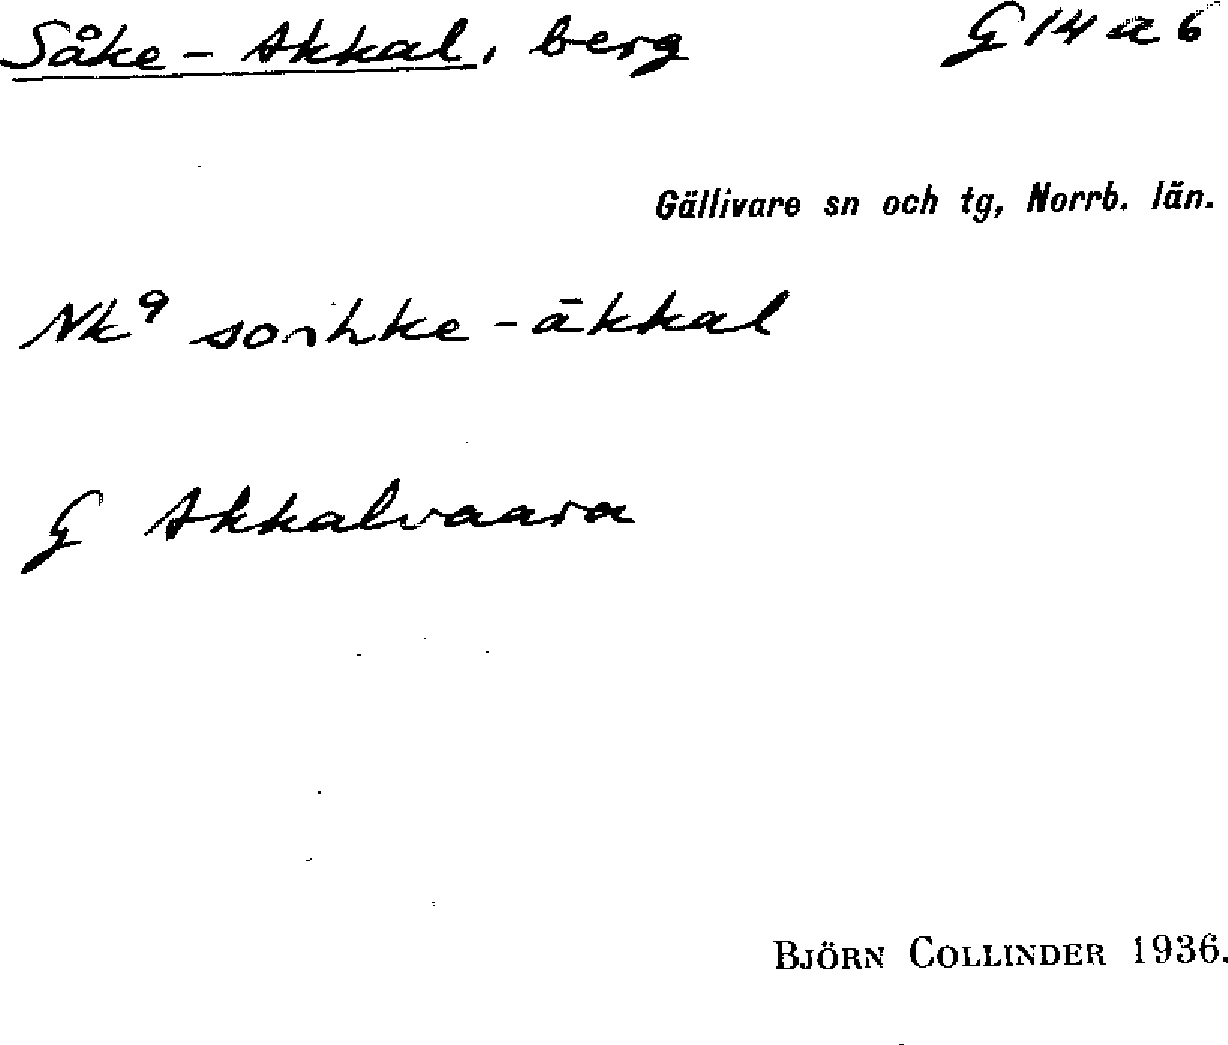 Såke-Akkal, berg G 14 a 6
Gällivare sn och tg, Norrb. län.
Nk⁹ soihke-ākkal
G Akkalvaara
BJÖRN COLLINDER 1936.